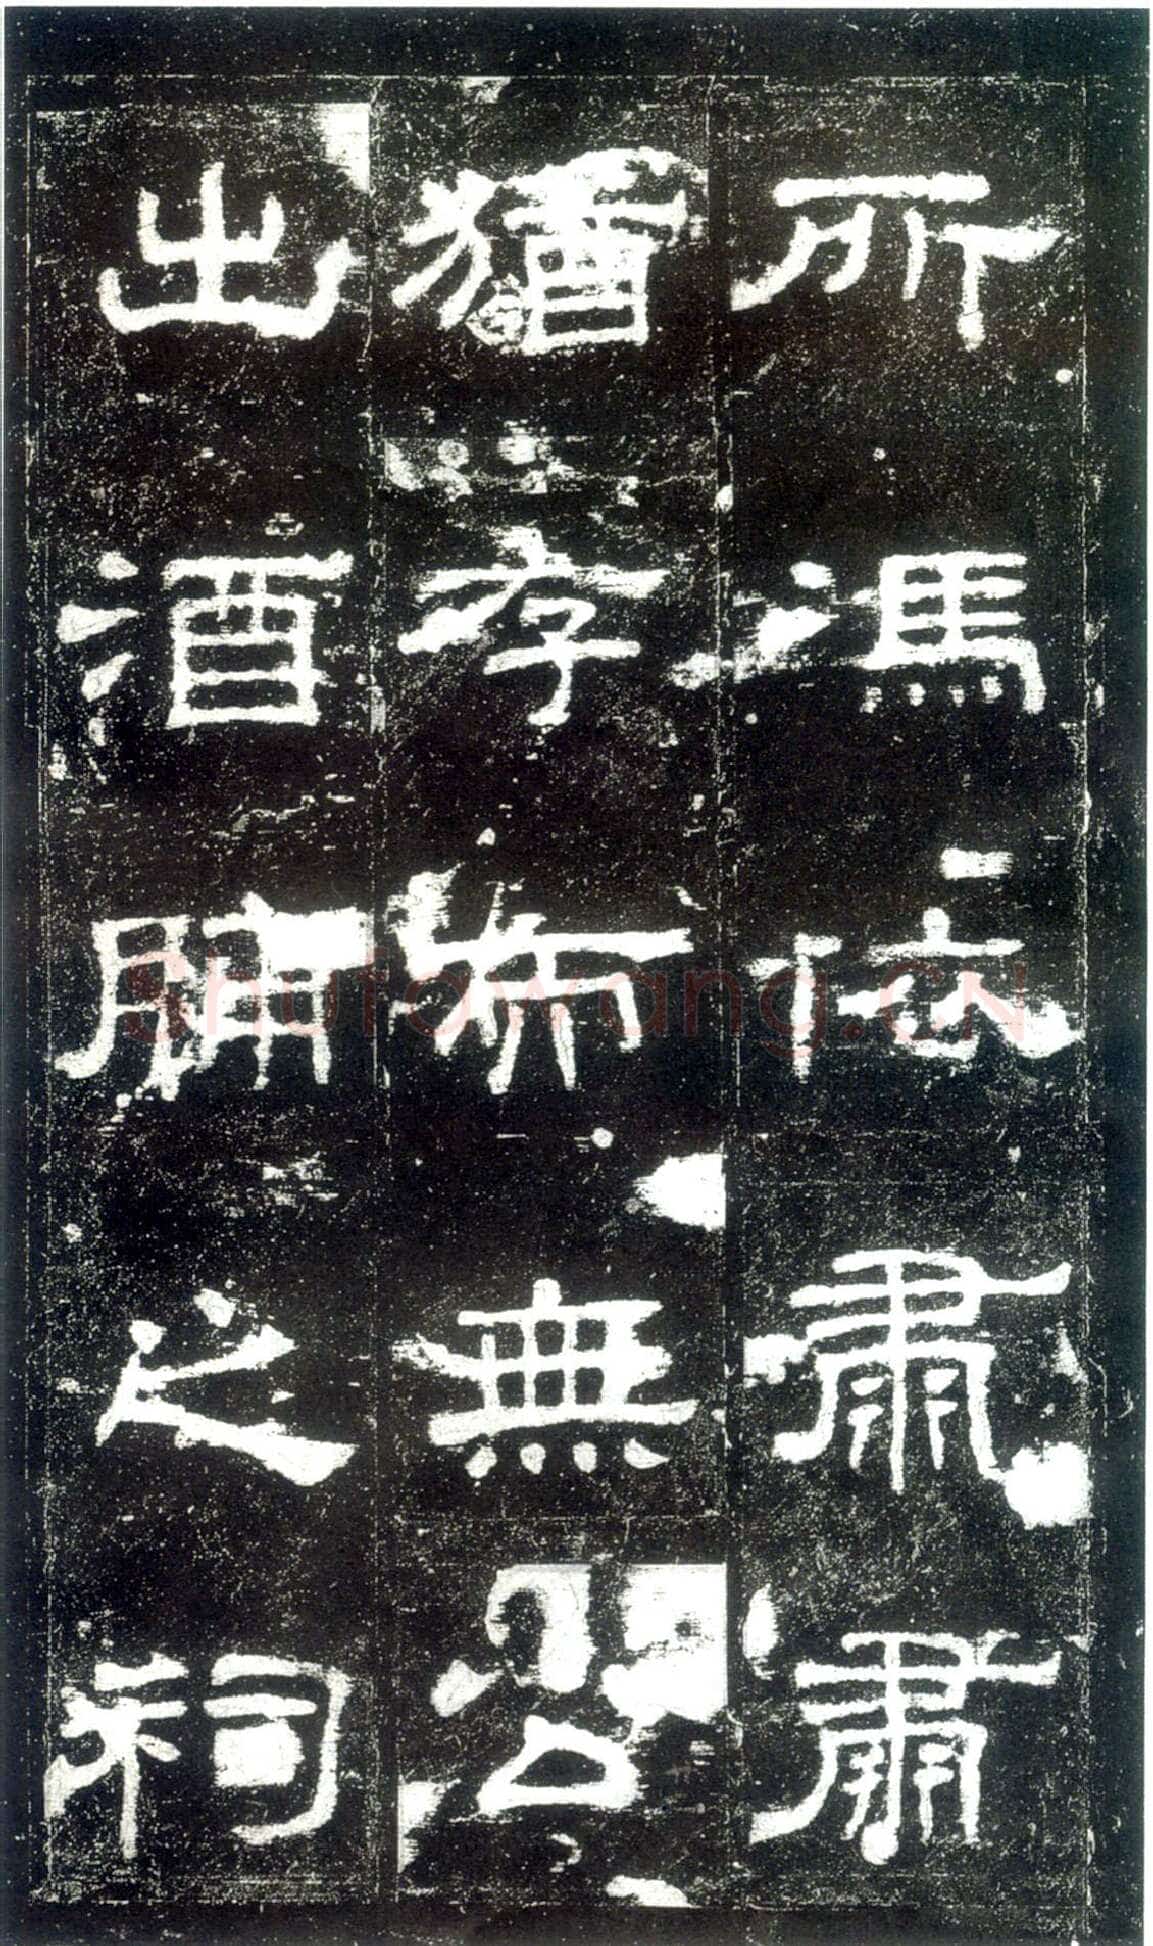 所馮依肅肅
猶存而無公
出酒脯之祠
Shufawang.CN